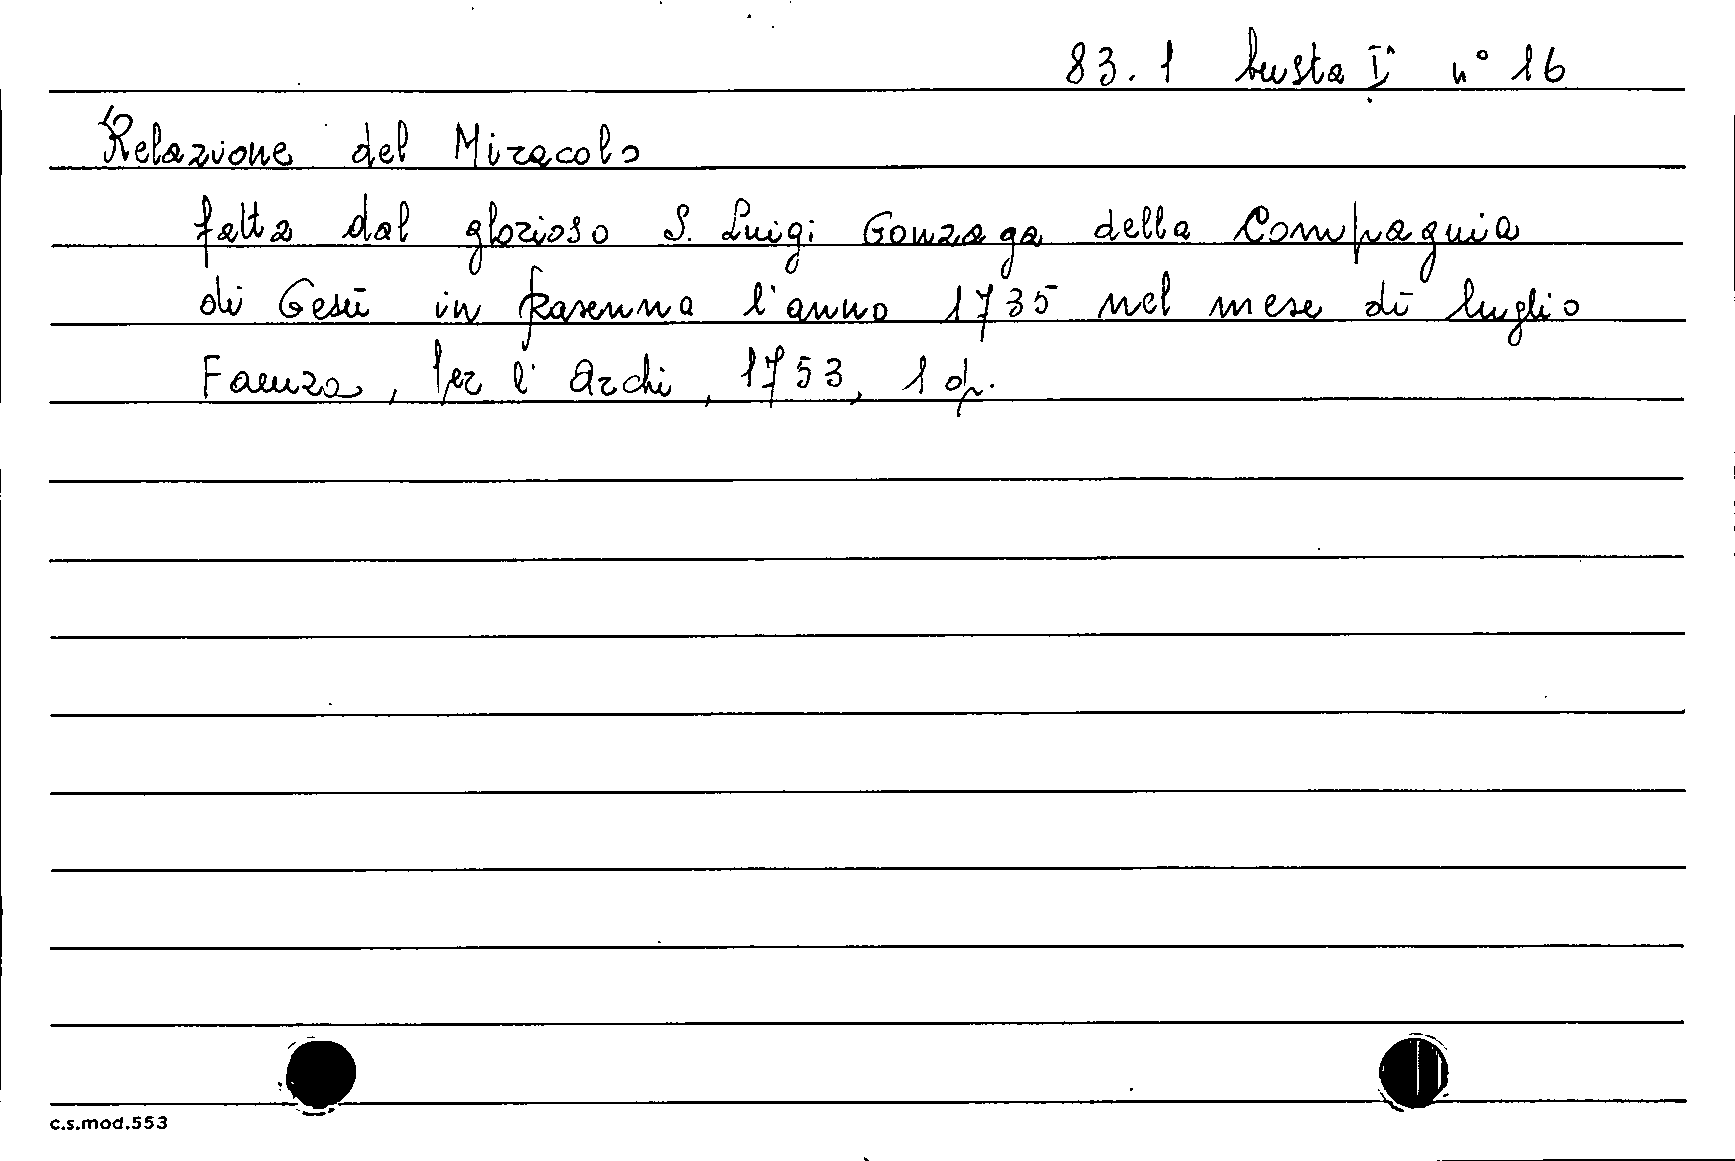 83.1 busta Iª n° 16
Relazione del Miracolo
fatta dal glorioso S. Luigi Gonzaga della Compagnia
di Gesù in Ravenna l'anno 1735 nel mese di luglio
Faenza, per l'Archi, 1753, 1 p.
c.s.mod.553